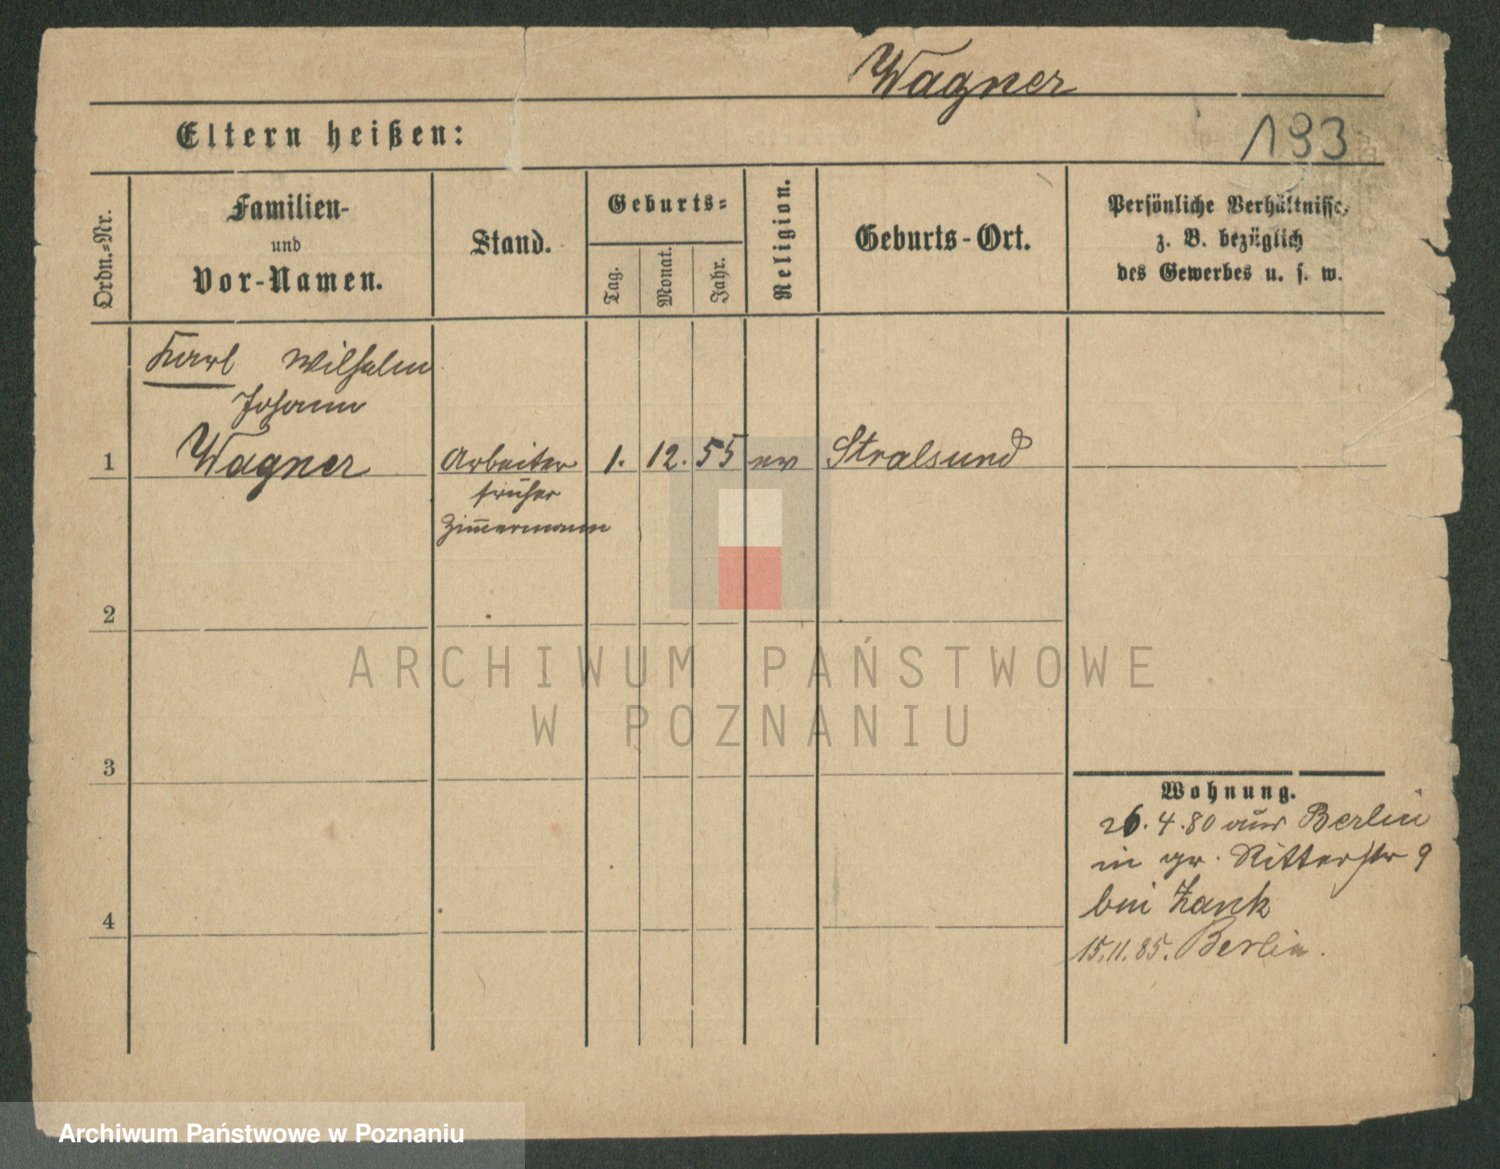 Wagner
193
Eltern heißen:
Ordn.-Nr.
Familien-
und
Vor-Namen.
Stand.
Geburts-
Tag.
Monat.
Jahr.
Religion.
Geburts-Ort.
Persönliche Verhältnisse,
z. B. bezüglich
des Gewerbes u. s. w.
Karl Wilhelm
Johann
1 Wagner Arbeiter 1. 12. 55 ev Stralsund
früher
Zim̄ermann
2
3
4
Wohnung.
26. 4. 80 aus Berlin
in gr. Ritterstr 9
bei Zank
15. 11. 85. Berlin.
ARCHIWUM PAŃSTWOWE
W POZNANIU
Archiwum Państwowe w Poznaniu